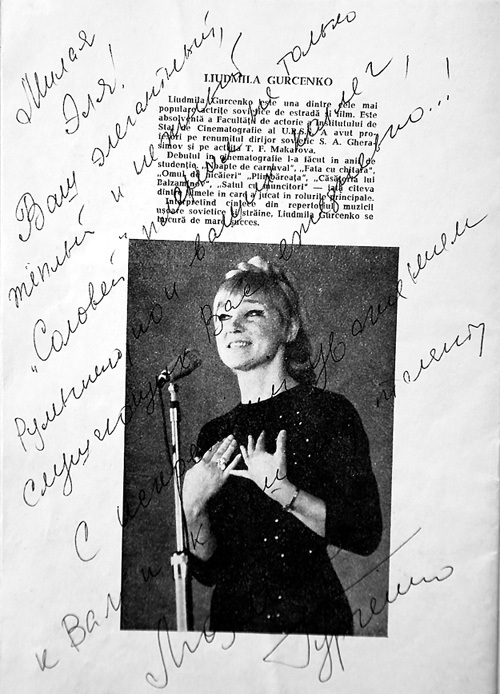 LIUDMILA GURCENKO
Liudmila Gurcenko este una dintre cele mai
populare actriţe sovietice de estradă şi film. Este
absolventă a Facultăţii de actorie a Institutului de
Stat de Cinematografie al U.R.S.S. A avut pro-
fesori pe renumitul dirijor sovietic S. A. Ghera-
simov şi pe actriţa T. F. Makarova.
Debutul în cinematografie l-a făcut în anii de
studenţie. „Noapte de carnaval", „Fata cu chitara",
„Omul de nicăieri" „Plimbăreaţa", „Căsătoria lui
Balzaminov", „Satul cu muncitori" — iată cîteva
dintre filmele în care a jucat în rolurile principale.
Interpretînd cîntece din repertoriul muzicii
uşoare sovietice şi străine, Liudmila Gurcenko se
bucură de mare succes.
Милая
Эля!
Ваш элегантный,
тёплый и
"Соловей" не только
коллег,
Вас ежедневно...!
С искренним уважением
к Вам и к таланту
Гурченко